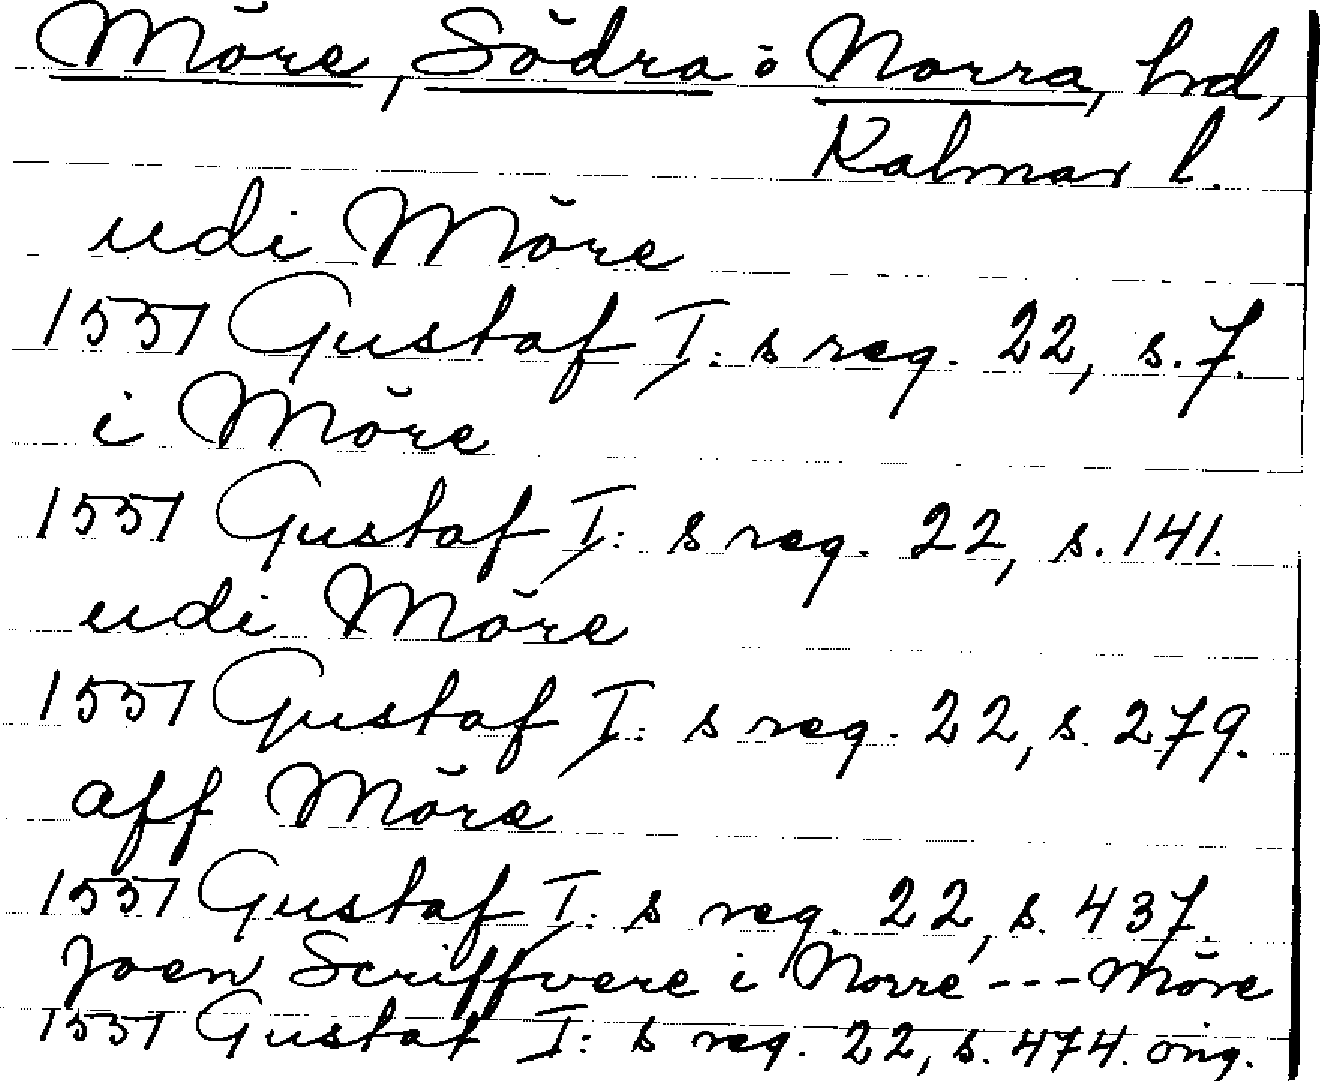 Möre, Södra o Norra, hrd,
Kalmar l.
udi Möre
1551 Gustaf I:s reg. 22, s. 7.
i Möre
1551 Gustaf I:s reg. 22, s. 141.
udi Möre
1551 Gustaf I:s reg. 22, s. 279.
aff Möre
1551 Gustaf I:s reg. 22, s. 437.
Joen Scriffvere i Norre --- Möre
1551 Gustaf I:s reg. 22, s. 474. orig.